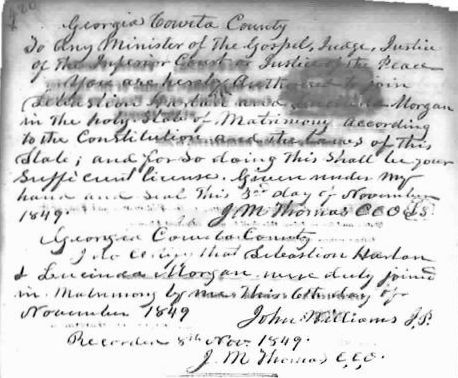 Georgia Cowita County
To any Minister of the Gospel, Judge, Justice
of the Inferior Court or Justice of the Peace
You are hereby Authorized to join
Sebastion Harlan and Lucinda Morgan
in the holy State of Matrimony according
to the Constitution and the Laws of this
State; and for So doing this Shall be your
Sufficient license. Given under my
hand and Seal this 3rd day of November
1849. J. M Thomas C C O L.S.
Georgia Coweta County
I do certify that Sebastion Harlan
& Lucinda Morgan were duly joined
in Matrimony by me this 6th day of
November 1849 John Williams J.P.
Recorded 8th Nov. 1849.
J. M Thomas C.C.O.